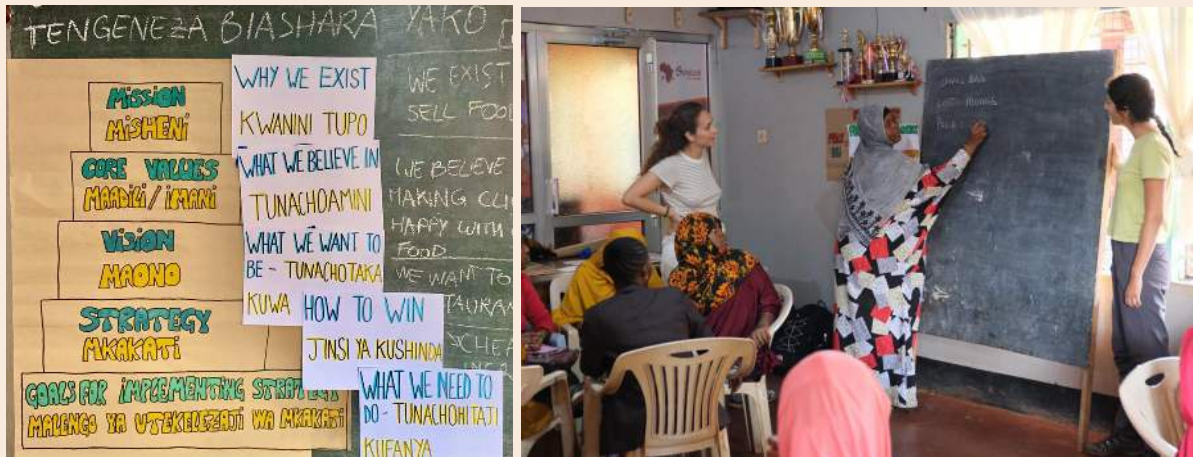 TENGENEZA BIASHARA YAKO
MISSION
MISHENI
CORE VALUES
MAADILI/IMANI
VISION
MAONO
STRATEGY
MKAKATI
GOALS FOR IMPLEMENTING STRATEGY
MALENGO YA UTEKELEZAJI WA MKAKATI
WHY WE EXIST
KWANINI TUPO
WHAT WE BELIEVE IN
TUNACHOAMINI
WHAT WE WANT TO
BE - TUNACHOTAKA
KUWA
HOW TO WIN
JINSI YA KUSHINDA
WHAT WE NEED TO
DO - TUNACHOHITAJI
KUFANYA
WE EXIST
SELL FOOD
WE BELIEVE
MAKING
HAPPY WITH
FOOD
WE WANT TO